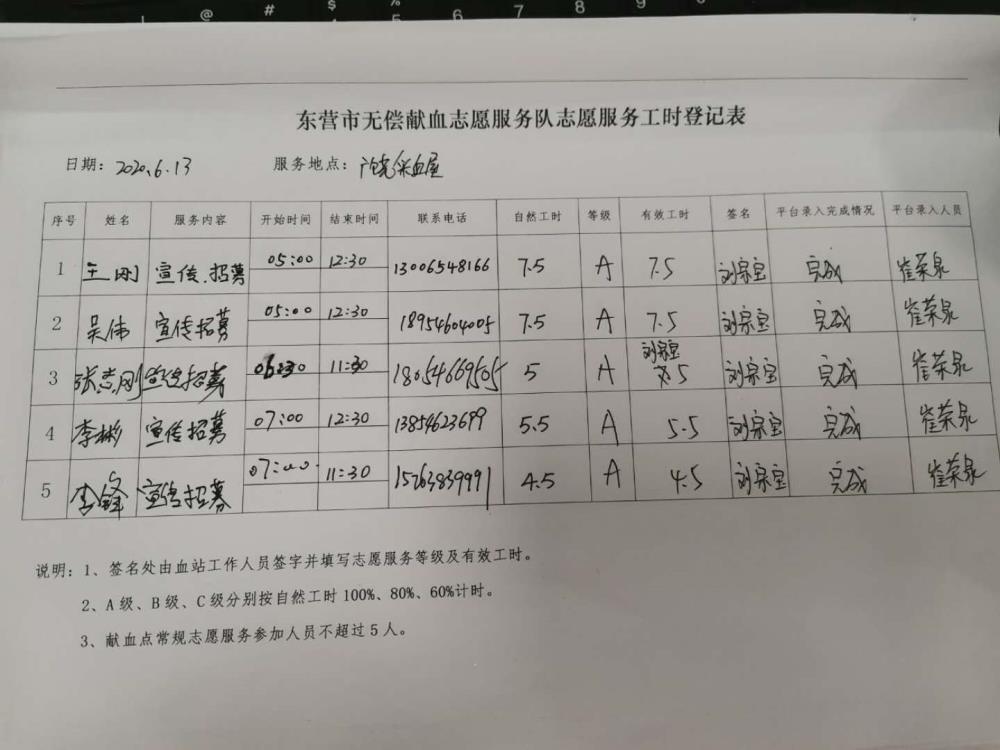 @ # $ % 5 6 7 8 9
东营市无偿献血志愿服务队志愿服务工时登记表
日期：2020.6.13 服务地点：广饶采血屋
序号 姓名 服务内容 开始时间 结束时间 联系电话 自然工时 等级 有效工时 签名 平台录入完成情况 平台录入人员
1 王刚 宣传.招募 05:00 12:30 13006548166 7.5 A 7.5 刘宗宝 完成 崔荣泉
2 吴伟 宣传招募 05:00 12:30 18954604005 7.5 A 7.5 刘宗宝 完成 崔荣泉
3 张志刚 宣传招募 06:30 11:30 18054669505 5 A 刘宗宝 5 刘宗宝 完成 崔荣泉
4 李彬 宣传招募 07:00 12:30 13854623699 5.5 A 5.5 刘宗宝 完成 崔荣泉
5 李锋 宣传招募 07:00 11:30 15263839991 4.5 A 4.5 刘宗宝 完成 崔荣泉
说明：1、签名处由血站工作人员签字并填写志愿服务等级及有效工时。
2、A级、B级、C级分别按自然工时100%、80%、60%计时。
3、献血点常规志愿服务参加人员不超过5人。